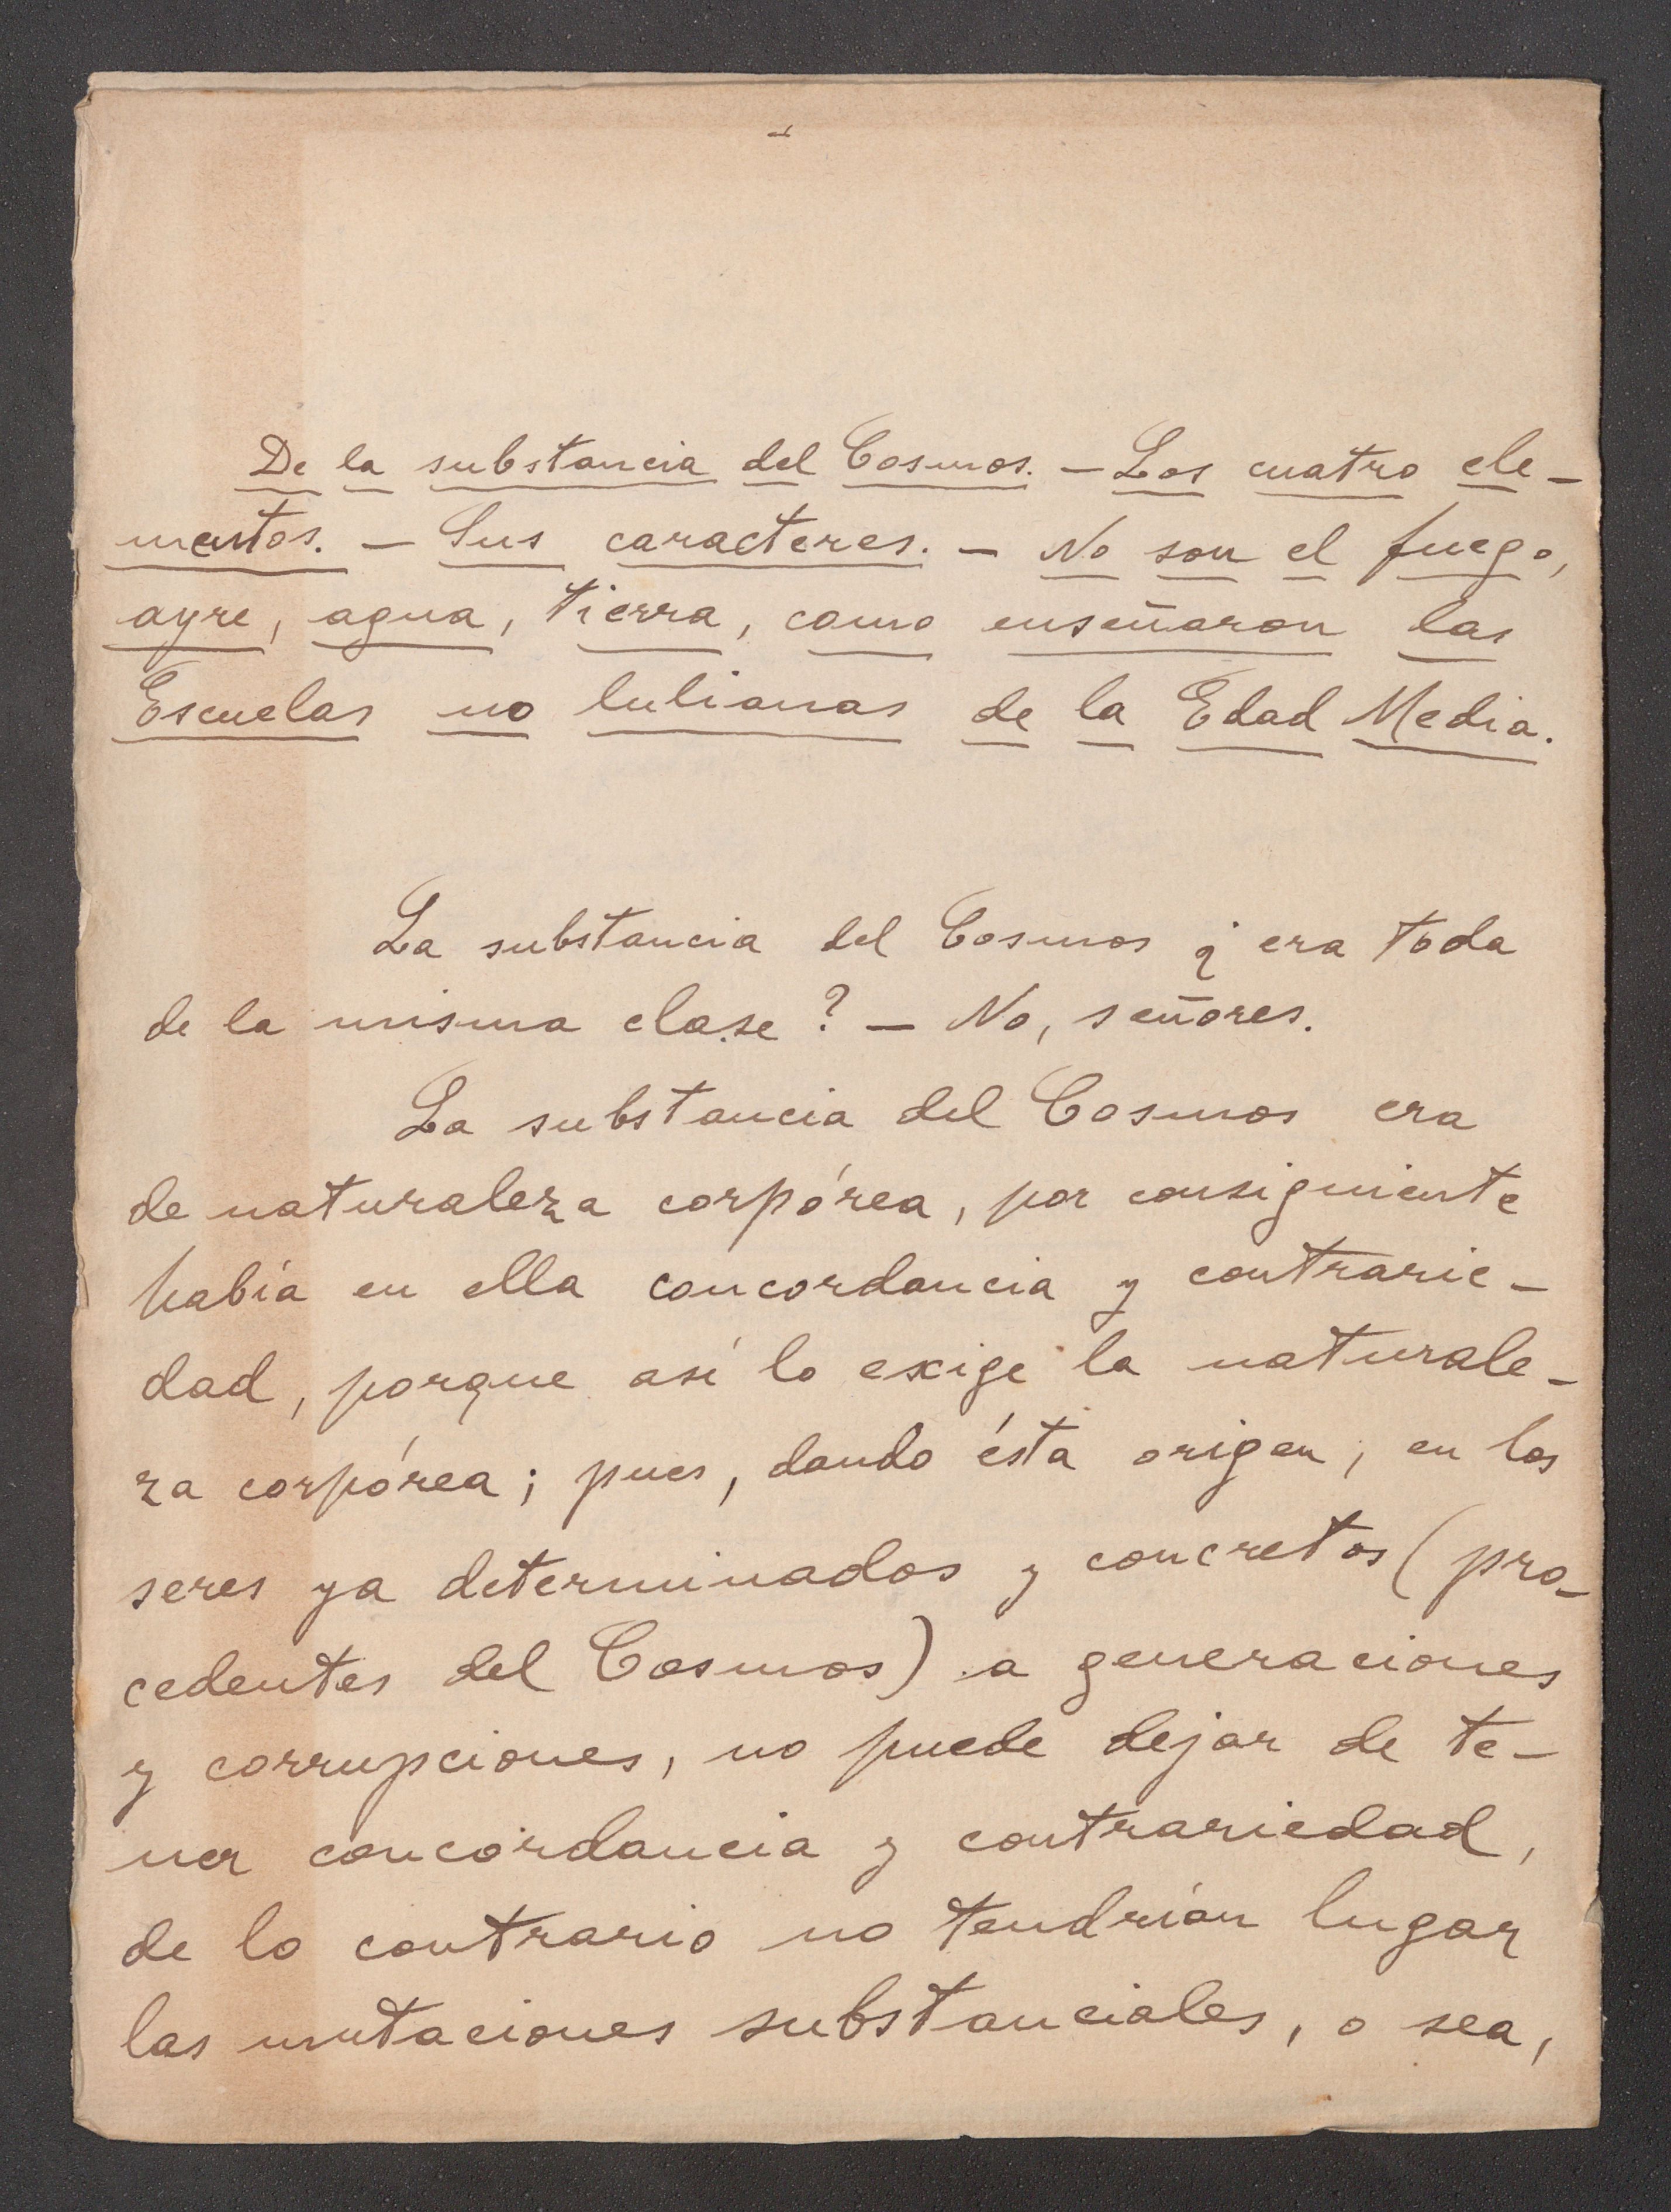 De la substancia del Cosmos. — Los cuatro ele-
mentos. — Sus caracteres. — No son el fuego,
ayre, agua, tierra, como enseñaron las
Escuelas no lulianas de la Edad Media.
La substancia del Cosmos ¿ era toda
de la misma clase? — No, señores.
La substancia del Cosmos era
de naturaleza corpórea, por consiguiente
había en ella concordancia y contrarie-
dad, porque así lo exige la naturale-
za corpórea; pues, dando ésta origen, en los
seres ya determinados y concretos (pro-
cedentes del Cosmos) a generaciones
y corrupciones, no puede dejar de te-
ner concordancia y contrariedad,
de lo contrario no tendrían lugar
las mutaciones substanciales, o sea,